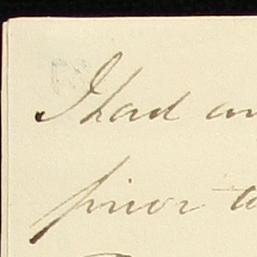 I had an
prior to